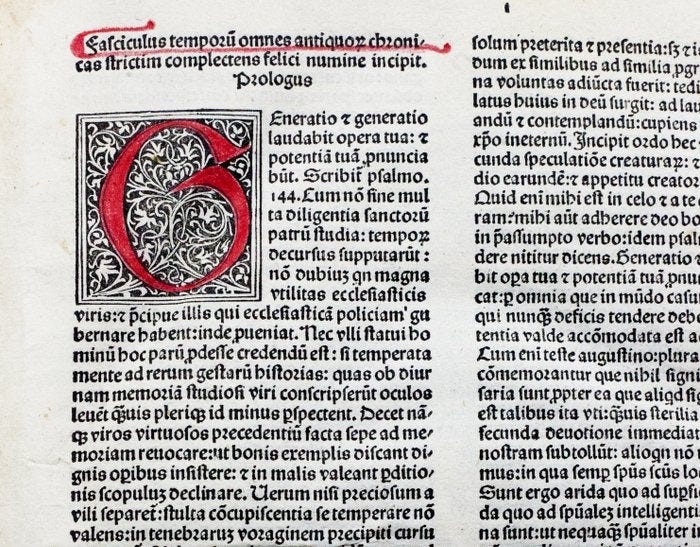 Fasciculus temporū omnes antiquoꝝ chroni-
cas strictim complectens felici numine incipit.
Prologus
Generatio ⁊ generatio
laudabit opera tua: ⁊
potentiā tuā ꝓnuncia
būt. Scribit̄ psalmo.
144. Cum nō sine mul
ta diligentia sanctorū
patrū studia: tempoꝝ
decursus supputarūt:
nō dubiuꝫ qn magna
vtilitas ecclesiasticis
viris:⁊ p̄cipue illis qui ecclesiasticā policiam gu
bernare habent:inde ꝓueniat. Nec vlli statui ho
minū hoc parū ꝓdesse credendū est: si temperata
mente ad rerum gestarū historias: quas ob diur
nam memoriā studiosi viri conscripserūt oculos
leuēt q̄uis pleriqꝫ id minus ꝑspectent. Decet nā-
qꝫ viros virtuosos precedentiū facta sepe ad me-
moriam reuocare:ut bonis exemplis discant di-
gnis oꝑibus insistere: ⁊ in malis valeant ꝑditio-
nis scopuluꝫ declinare. Uerum nisi preciosum a
vili separet̄:stulta cōcupiscentia se temperare nō
valens:in tenebraruꝫ voraginem precipiti cursu
solum preterita ⁊ presentia:sꝫ ⁊
dum ex similibus ad similia ꝓgr
na voluntas adiūcta fuerit: tedi
latus huius in deū surgit: ad lau
andū ⁊ contemplandū:cupiens
xp̄o ineternū. Incipit ordo hec
cunda speculatiōe creaturaꝝ: ⁊
dio earundē:⁊ appetitu creator
Quid enī mihi est in celo ⁊ a te
ram:mihi aūt adherere deo bo
in p̄assumpto verbo:idem psal
dere nititur dicens. Generatio ⁊
bit oꝑa tua ⁊ potentiā tuā ꝓnu
cat:ꝙ omnia que in mūdo casu
qui nunqꝫ deficis tendere debe
tentia valde accōmodata est a
Cum enī teste augustino:plura
cōmemorantur que nihil signi
saria sunt ꝓpter ea que aliqd sig
est talibus ita vti:q̄uis sterilia
secunda deuotione immediat
nostram subtollūt: alioqn nō
mus:in qua semꝑ sp̄us scūs lo
Sunt ergo arida quo ad suꝑf
da quo ad sp̄ualeꝫ intelligenti
na sunt:ut nequaqꝫ sp̄ualiter i